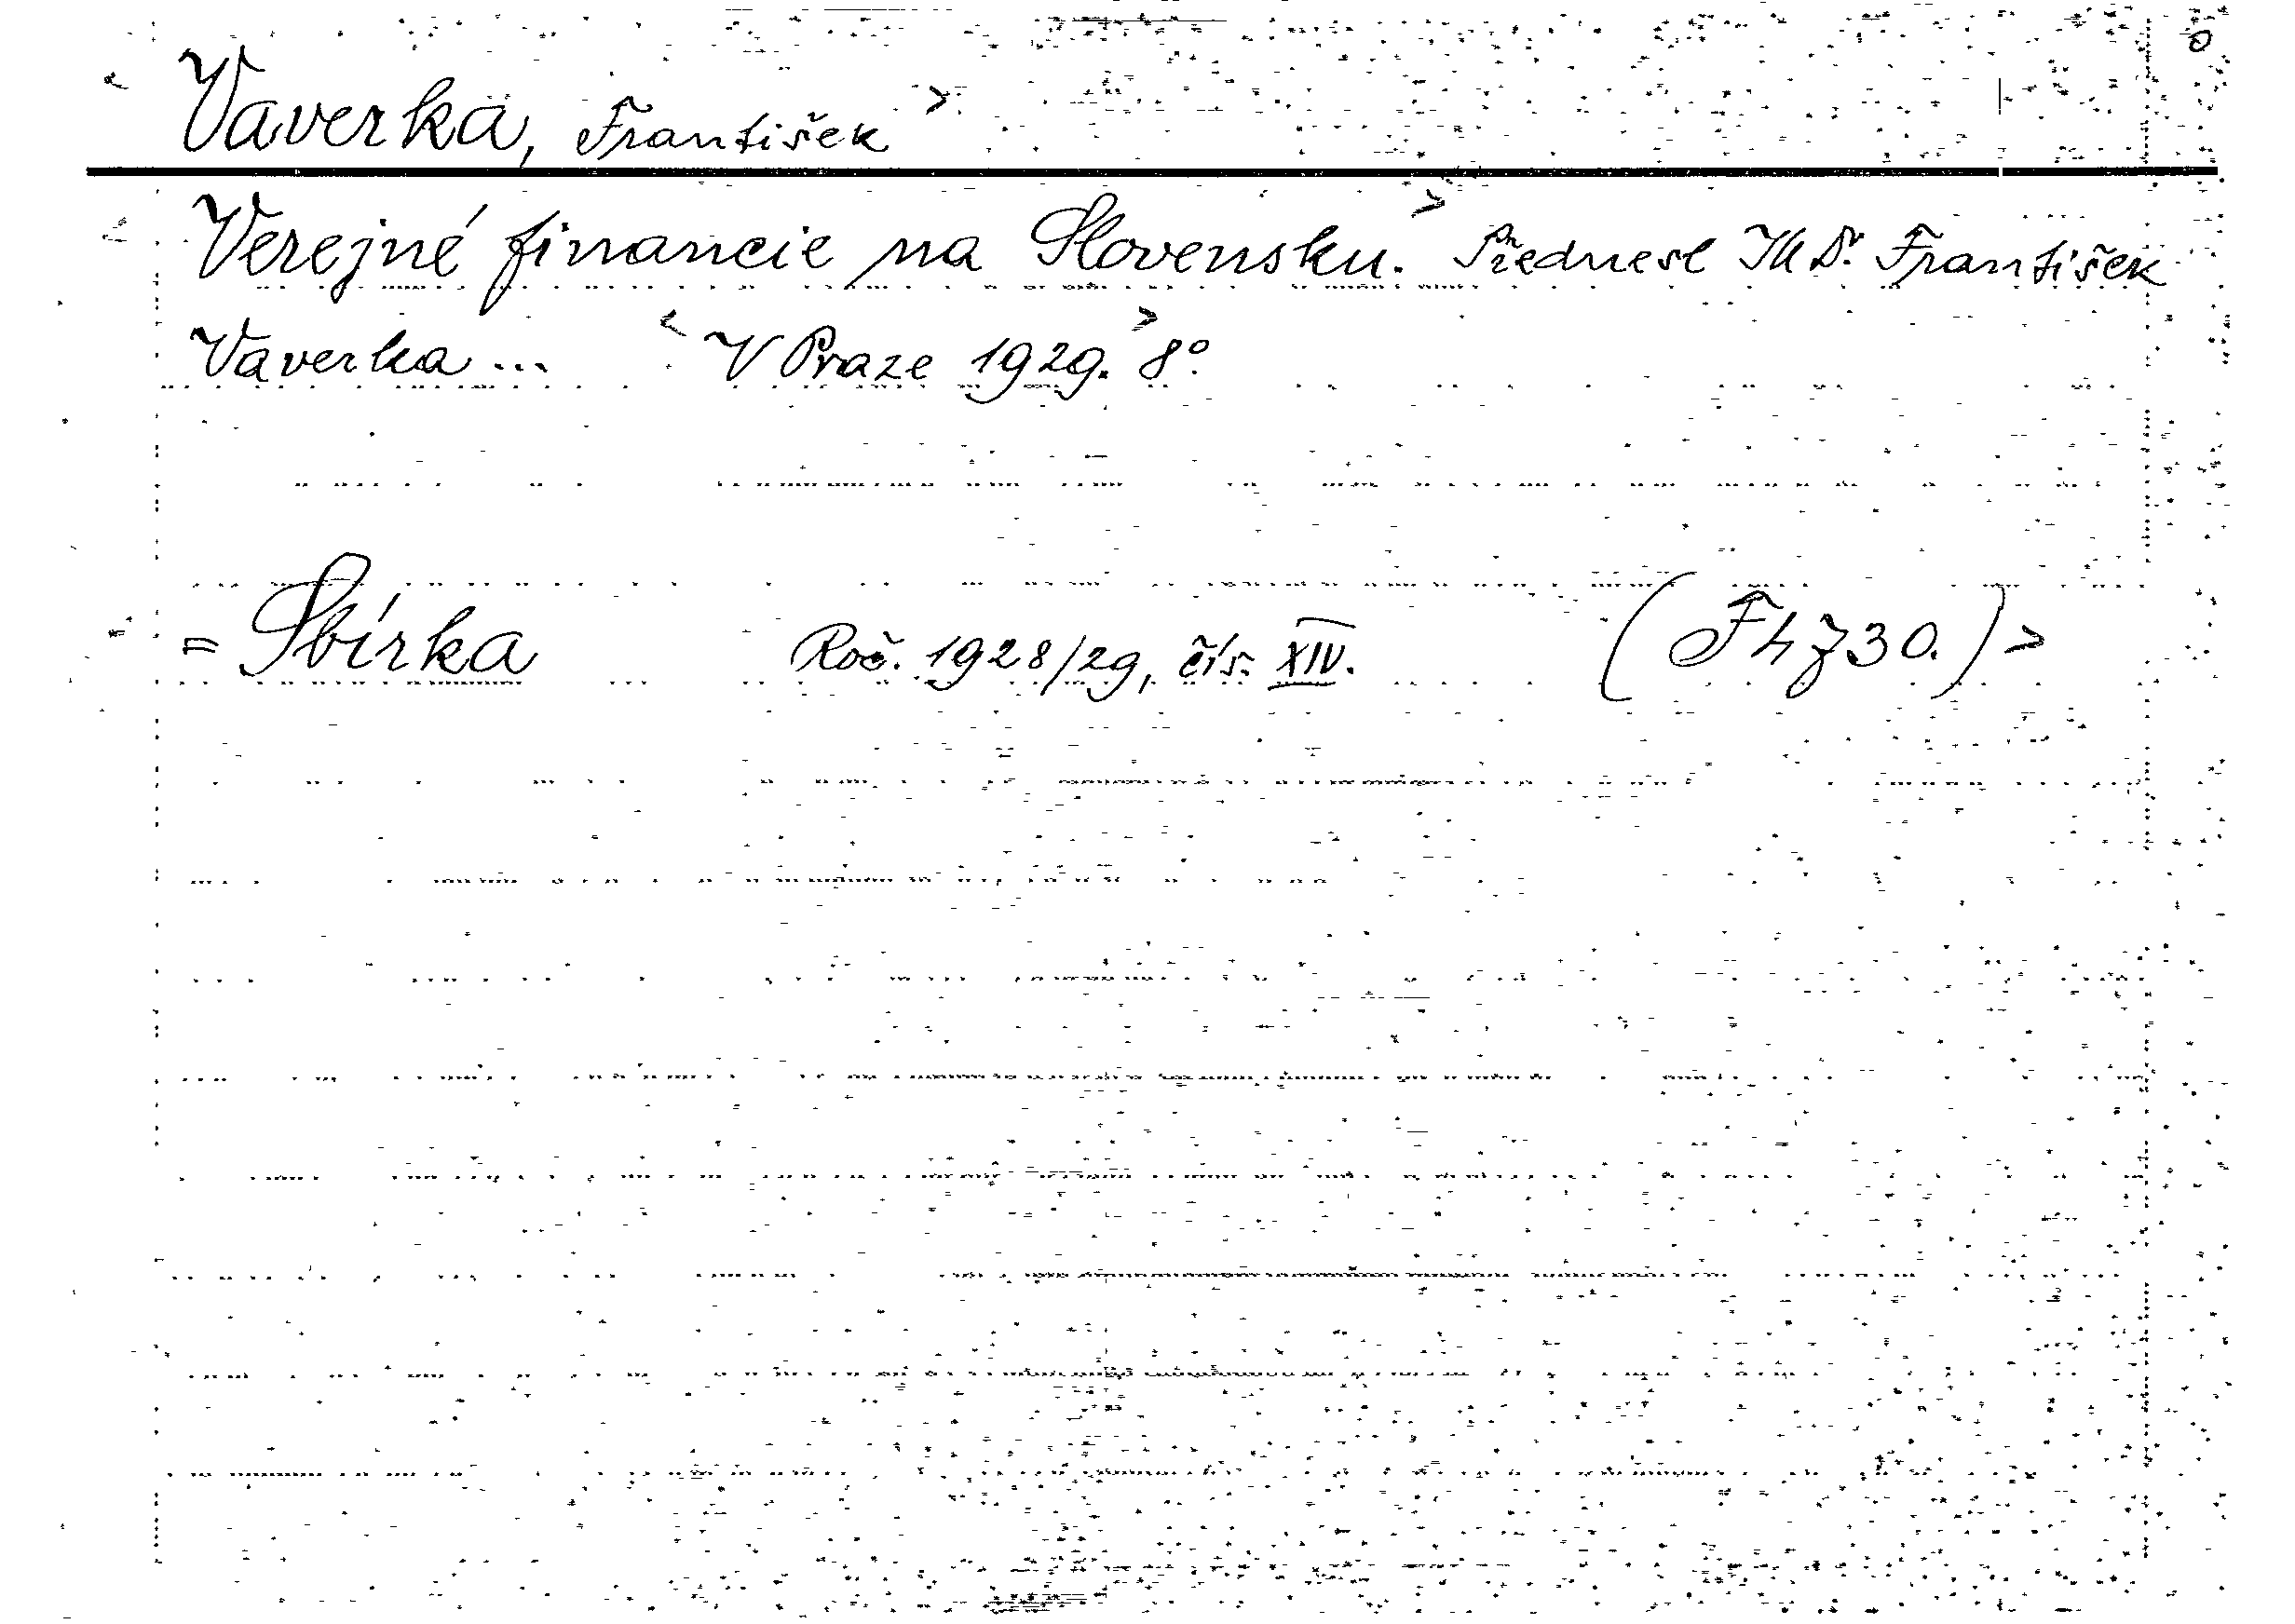 < Vaverka, František >
< Verejné financie na Slovensku. > Přednesl JUDr. František
Vaverka ... < V Praze 1929. > 8°.
< = Sbírka Roč. 1928/29, čís. XIV. (F h 730.) >